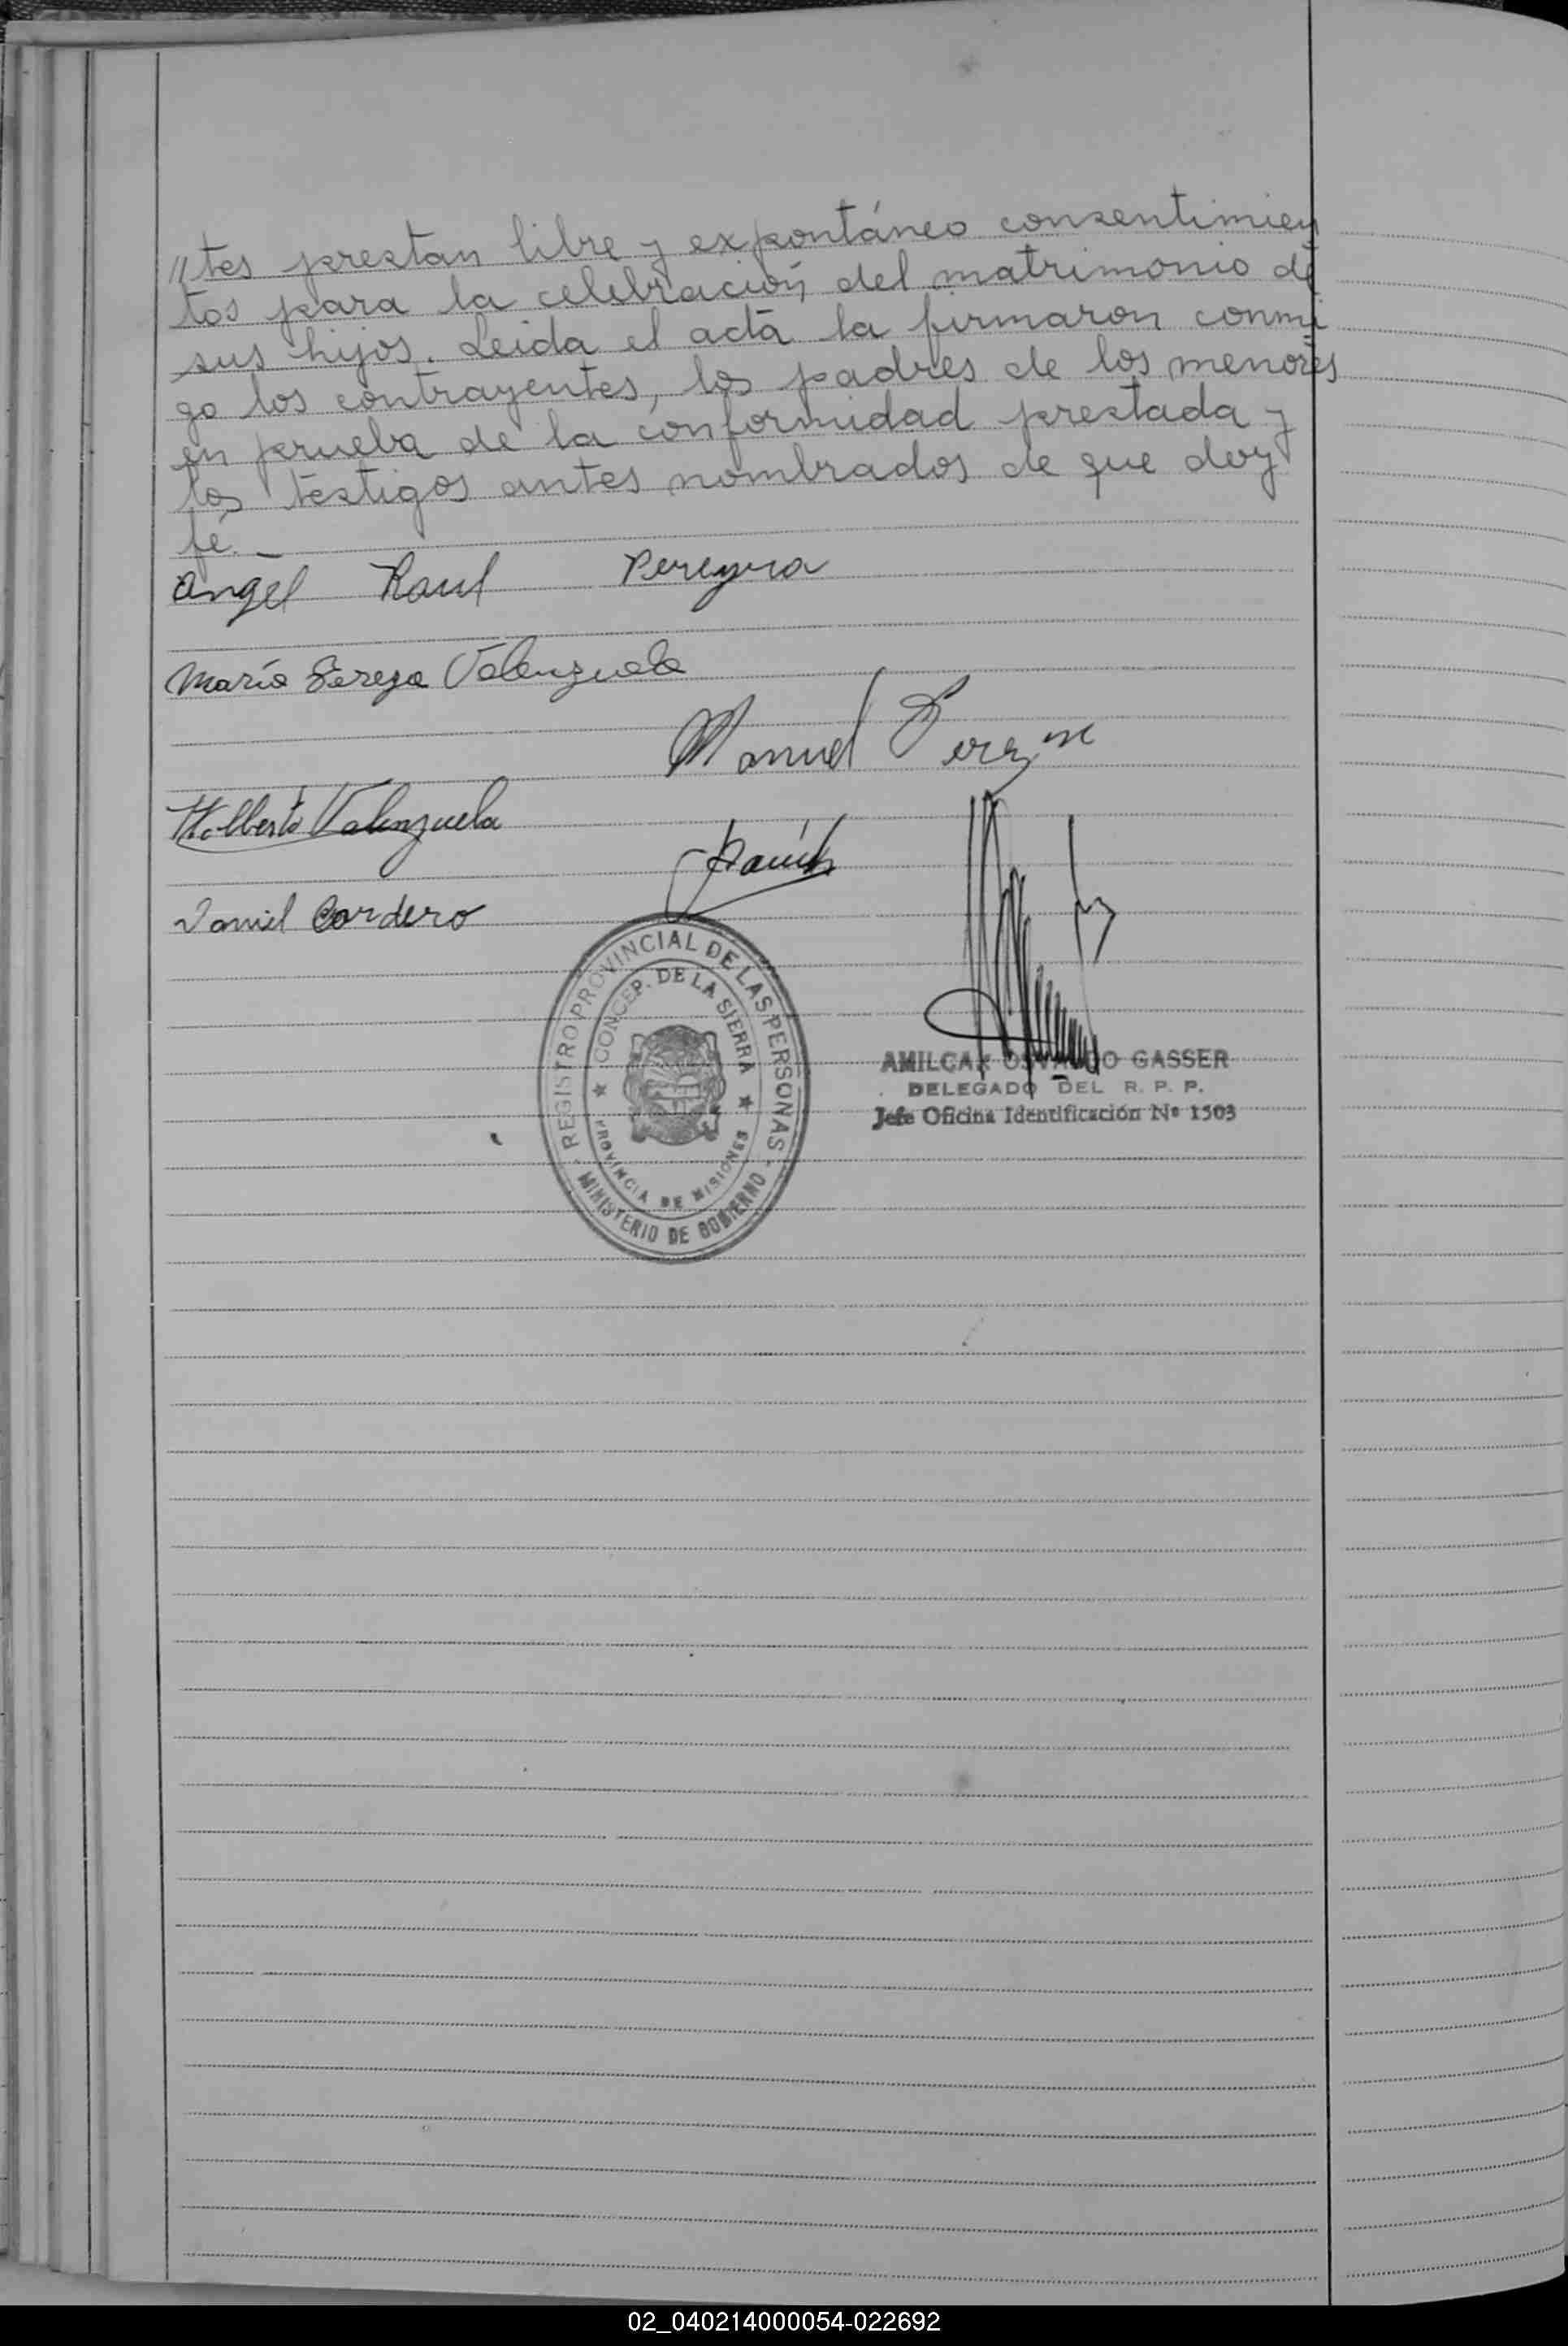 //tes prestan libre y expontáneo consentimien
tos para la celebración del matrimonio de
sus hijos. Leida el acta la firmaron conmi
go los contrayentes, los padres de los menores
en prueba de la conformidad prestada y
los testigos antes nombrados de que doy
fé.-
Angel Raul Pereyra
María Tereza Valenzuela
Manuel
Valenzuela
Daniel Cordero
REGISTRO PROVINCIAL DE LAS PERSONAS
CONCEP. DE LA SIERRA
PROVINCIA DE MISIONES
MINISTERIO DE GOBIERNO
AMILCAR OSVALDO GASSER
DELEGADO DEL R. P. P.
Jefe Oficina Identificación Nº 1503
02_040214000054-022692